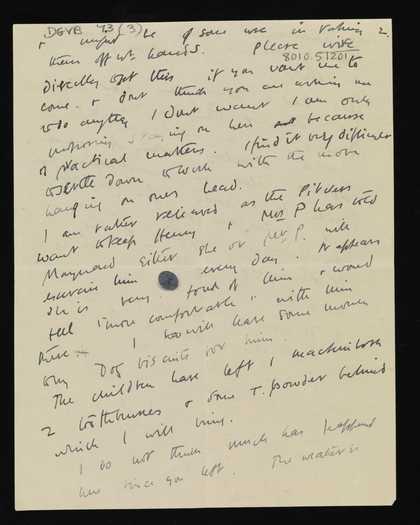 DGVB 43 (3)
2.
& might be of some use in taking
them off yr hands. Please write
8010.5.1201
directly you get this if you want me to
come. & dont think you are asking me
to do anything I dont want. I am only
staying on here because
of practical matters. I find it very difficult
to settle down to work with the move
hanging on ones head.
I am rather relieved as the Pitchers
want to keep Henry & Mrs P has told
Maynard. Either she or Mr P. will
exercise him every day. It appears
she is very fond of him & would
feel "more comfortable" with him
there. I will leave some money
to buy Dog biscuits for him.
The children have left 1 mackintosh
2 toothbrushes & some T. powder behind
which I will bring.
I do not think much has happened
here since you left. The weather is